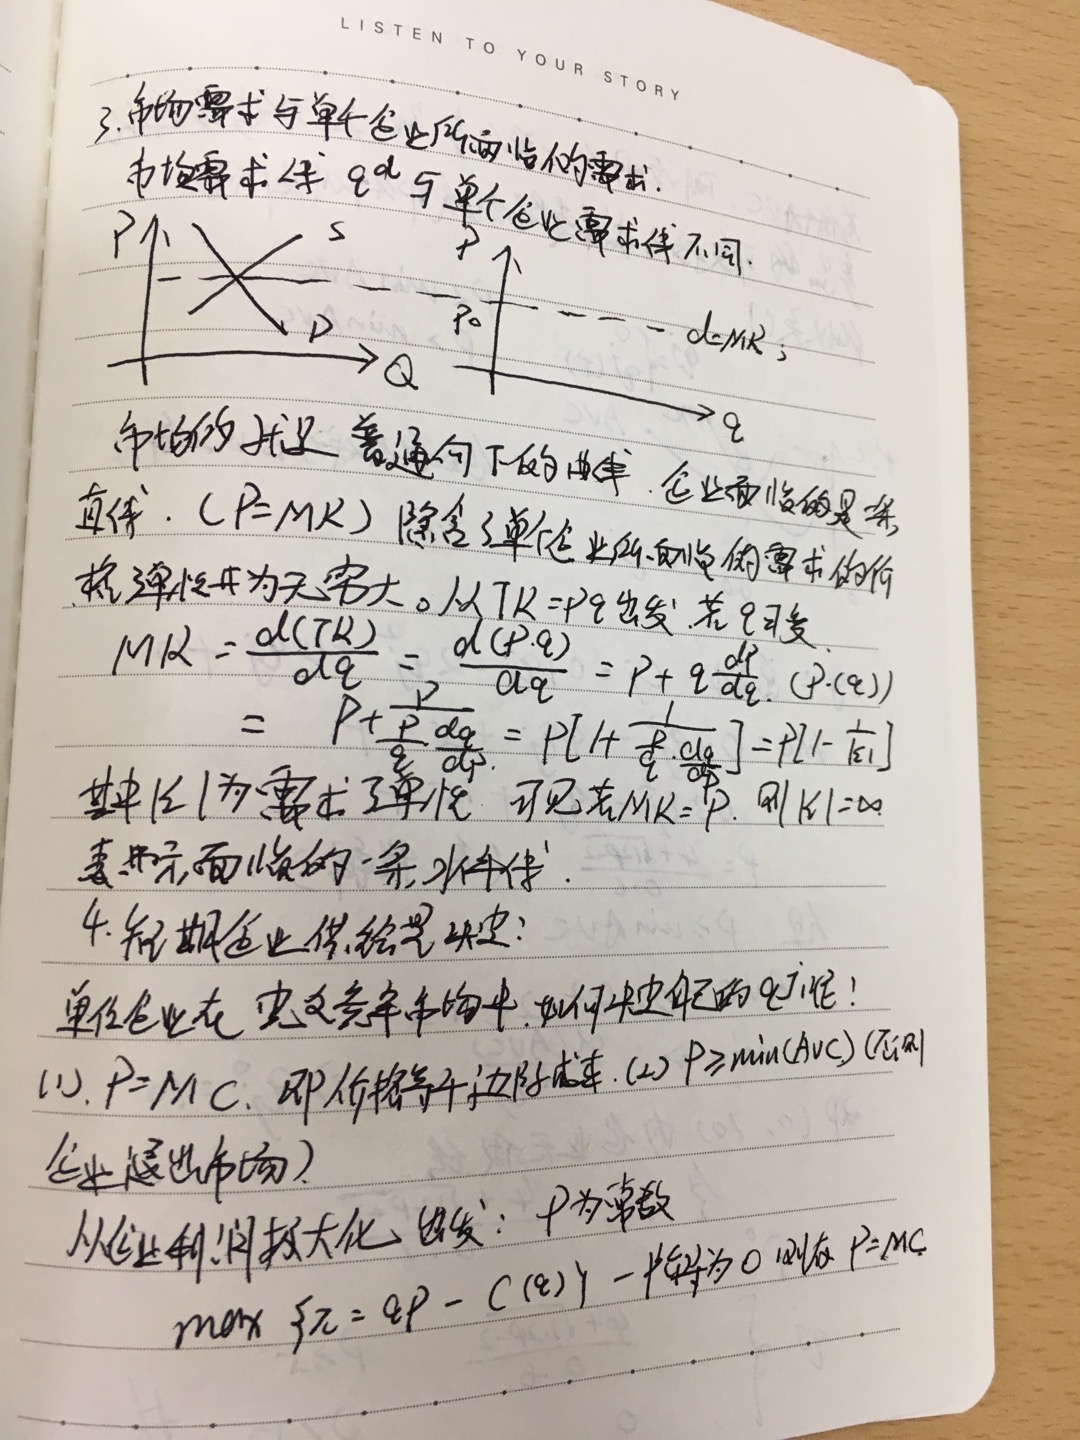 LISTEN TO YOUR STORY
3. 市场需求与单个企业所面临的需求.
市场需求线 qd 与单个企业需求线不同.
P S P
P0 d=MR;
D
Q q
市场的就是普通向下的曲线. 企业面临的是条
直线. (P=MR) 隐含了单个企业所面临的需求的价
格弹性为无穷大。从TR=Pq出发. 若q可变
MR = d(TR)/dq = d(P·q)/dq = P + q dP/dq. (P·(q))
= P + P/(P/q dq/dP) = P[1+ 1/(P/q · dq/dP)] = P[1- 1/|ε|]
其中|ε|为需求弹性 可见若MR=P. 则|ε|=∞
表示面临的一条水平线.
4. 短期企业供给是决定:
单位企业在完全竞争市场中. 如何决定自己的q呢!
(1). P=MC. 即价格等于边际成本. (2) P≥min(AVC) (否则
企业退出市场)
从企业利润极大化出发: P为常数
max {π = qP - C(q)} 一阶导为0 则有 P=MC